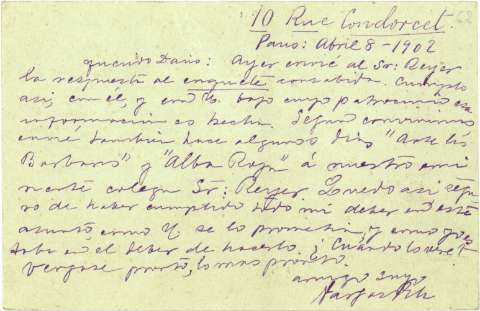 10 Rue Condorcet.
Paris: Abril 8-1902
querido Dario: Ayer envié al Sr: Reyer
la respuesta al enqueté consabida. Cumplo
asi con él, y con V. bajo cuyo patrocinio esa
informacion es hecha. Segun convinimos
envié tambien hace algunos dias "Ante los
Barbaros" y "Alba Roja" á nuestro emi
nente colega Sr: Reyer. Quedo asi segu
ro de haber cumplido todo mi deber en este
asunto como V. se lo prometia, y como yo es
taba en el deber de hacerlo ¿Cuándo lo veré?
Vengase pronto, lo mas pronto.
amigo suyo
Vargas Vila